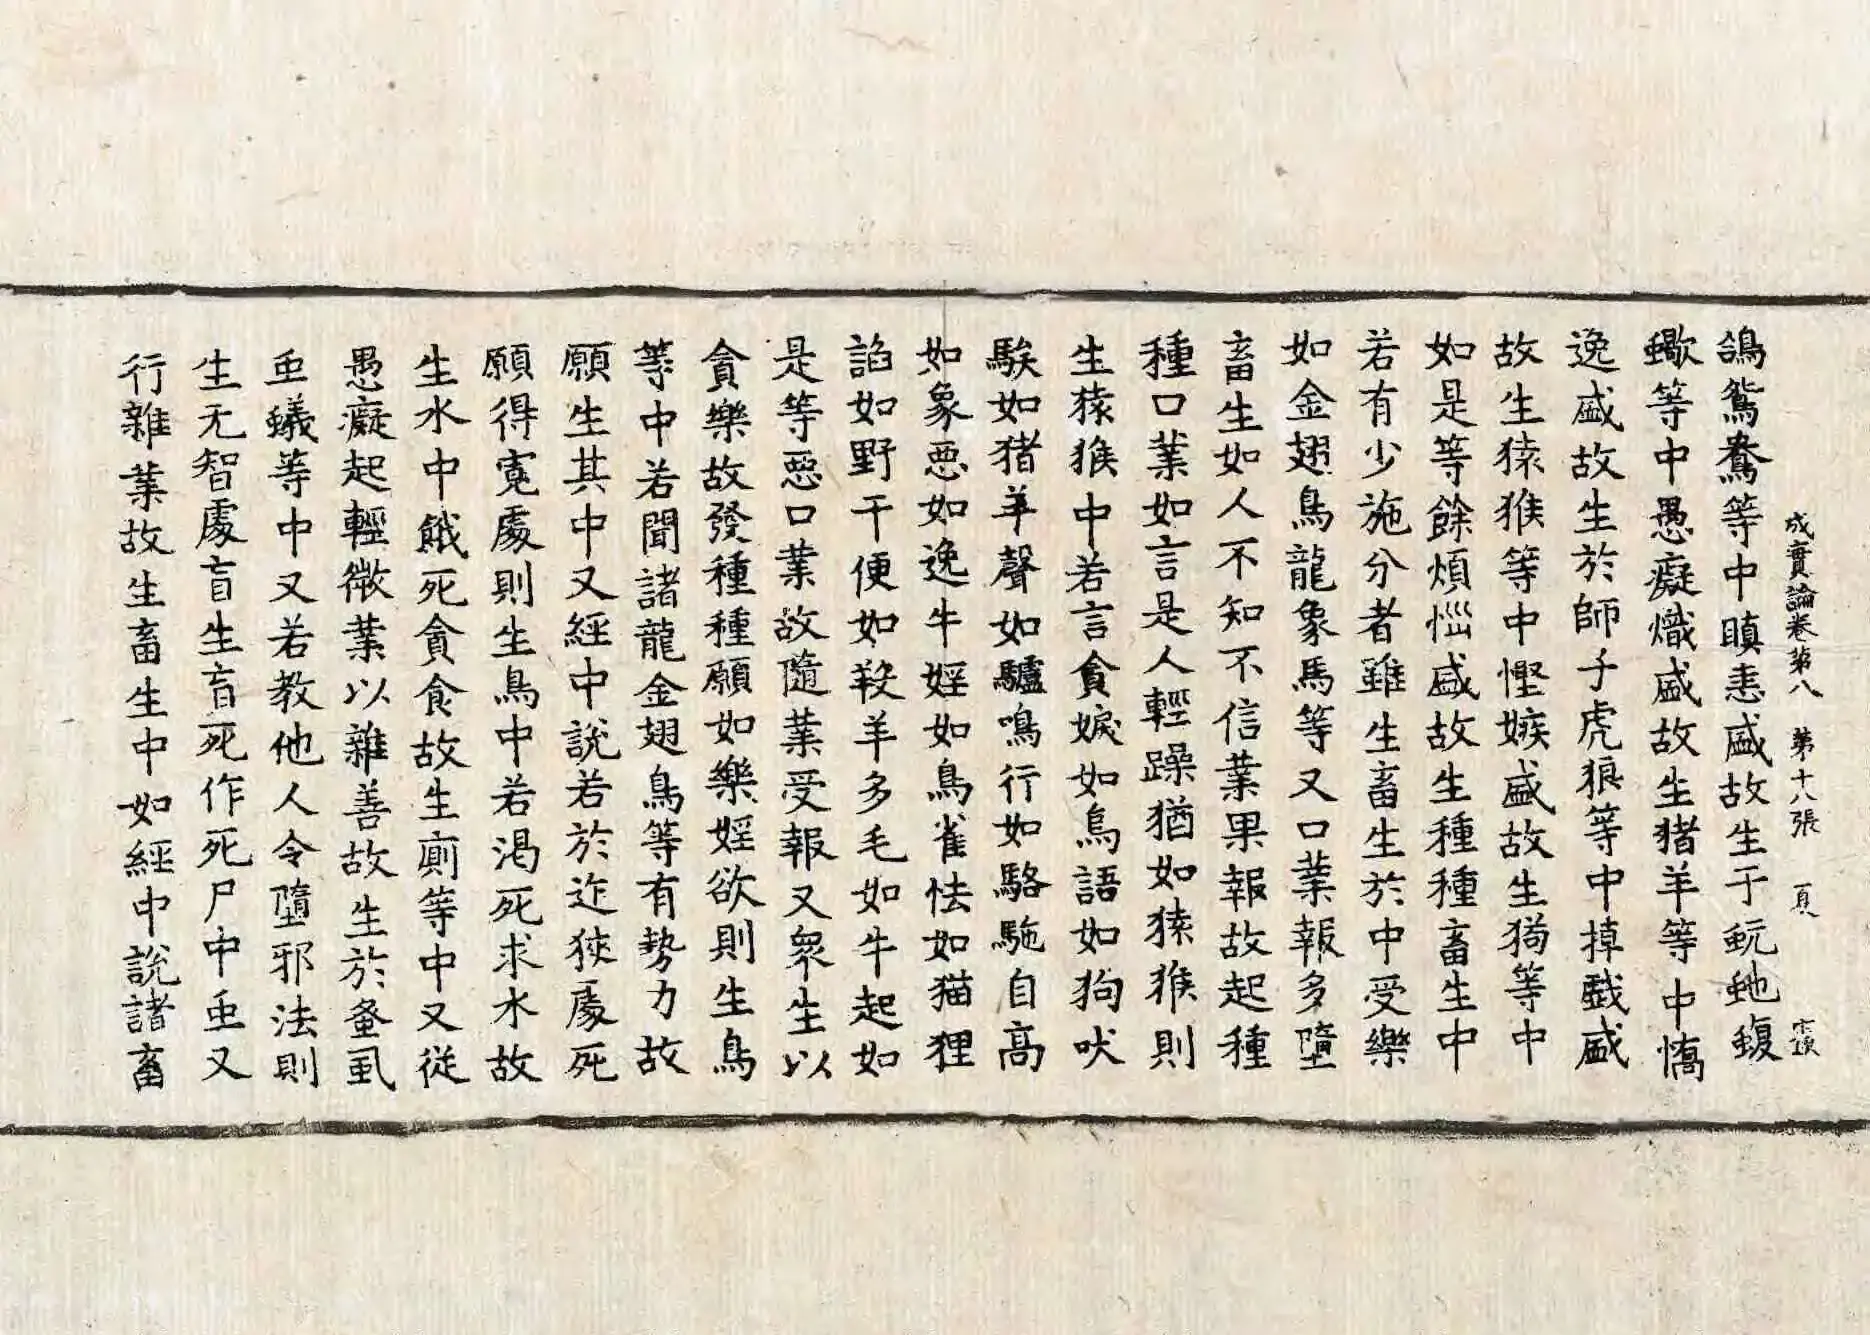 成實論卷第八　第十八張
鴿鴛鴦等中瞋恚盛故生于蚖虵蝮
蠍等中愚癡熾盛故生猪羊等中憍
逸盛故生於師子虎狼等中掉戲盛
故生猿猴等中慳嫉盛故生狗等中
如是等餘煩惱盛故生種種畜生中
若有少施分者雖生畜生於中受樂
如金翅鳥龍象馬等又口業報多墮
畜生如人不知不信業果報故起種
種口業如言是人輕躁猶如猿猴則
生猿猴中若言貪婗如烏語如狗吠
騃如猪羊聲如驢鳴行如駱駞自高
如象惡如逸牛婬如鳥雀怯如猫狸
諂如野干便如羖羊多毛如牛起如
是等惡口業故隨業受報又衆生以
貪樂故發種種願如樂婬欲則生鳥
等中若聞諸龍金翅鳥等有勢力故
願生其中又經中說若於迮狹處死
願得寬處則生鳥中若渴死求水故
生水中餓死貪食故生廁等中又從
愚癡起輕微業以雜善故生於蚤虱
䖝蟻等中又若教他人令墮邪法則
生无智處盲生盲死作死尸中䖝又
行雜業故生畜生中如經中說諸畜